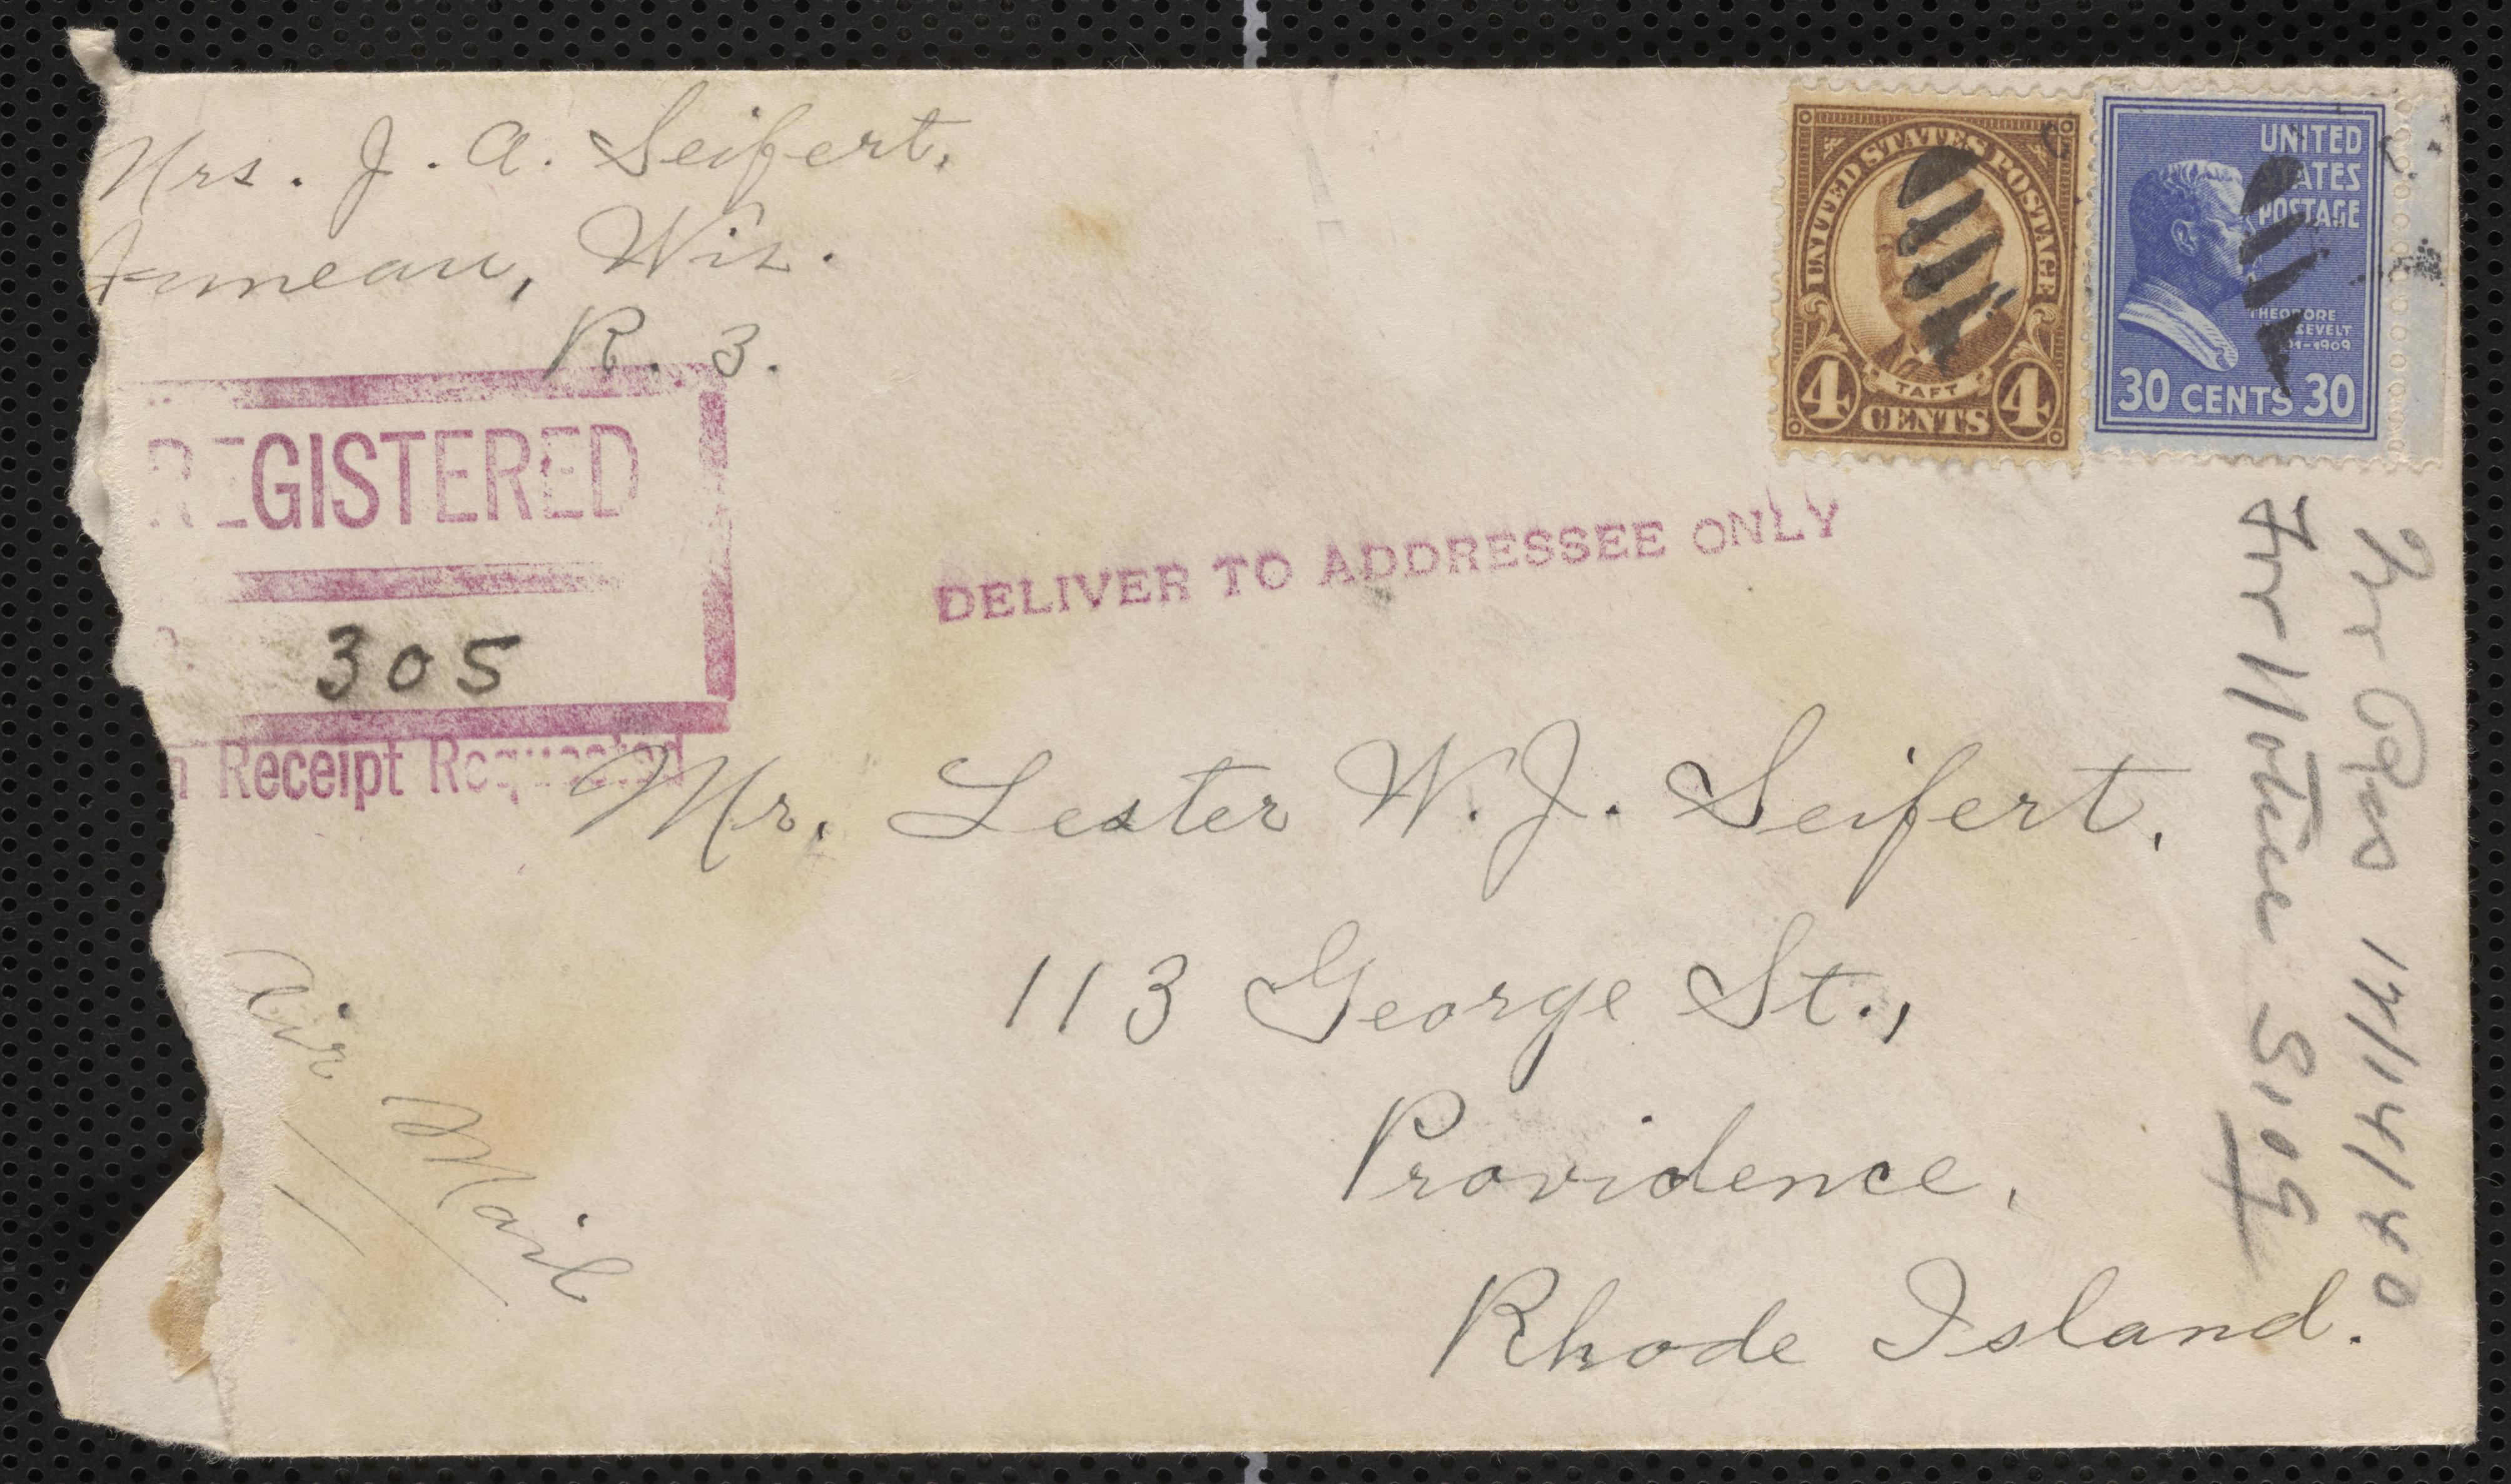 Mrs. J. A. Seifert.
Juneau, Wis.
R. 3.
UNITED STATES POSTAGE
TAFT
4 CENTS 4
UNITED
STATES
POSTAGE
THEODORE
ROOSEVELT
1901-1909
30 CENTS 30
REGISTERED
305
n Receipt Requested
DELIVER TO ADDRESSEE ONLY
Mr. Lester W. J. Seifert.
113 George St.,
Providence,
Rhode Island.
Air Mail